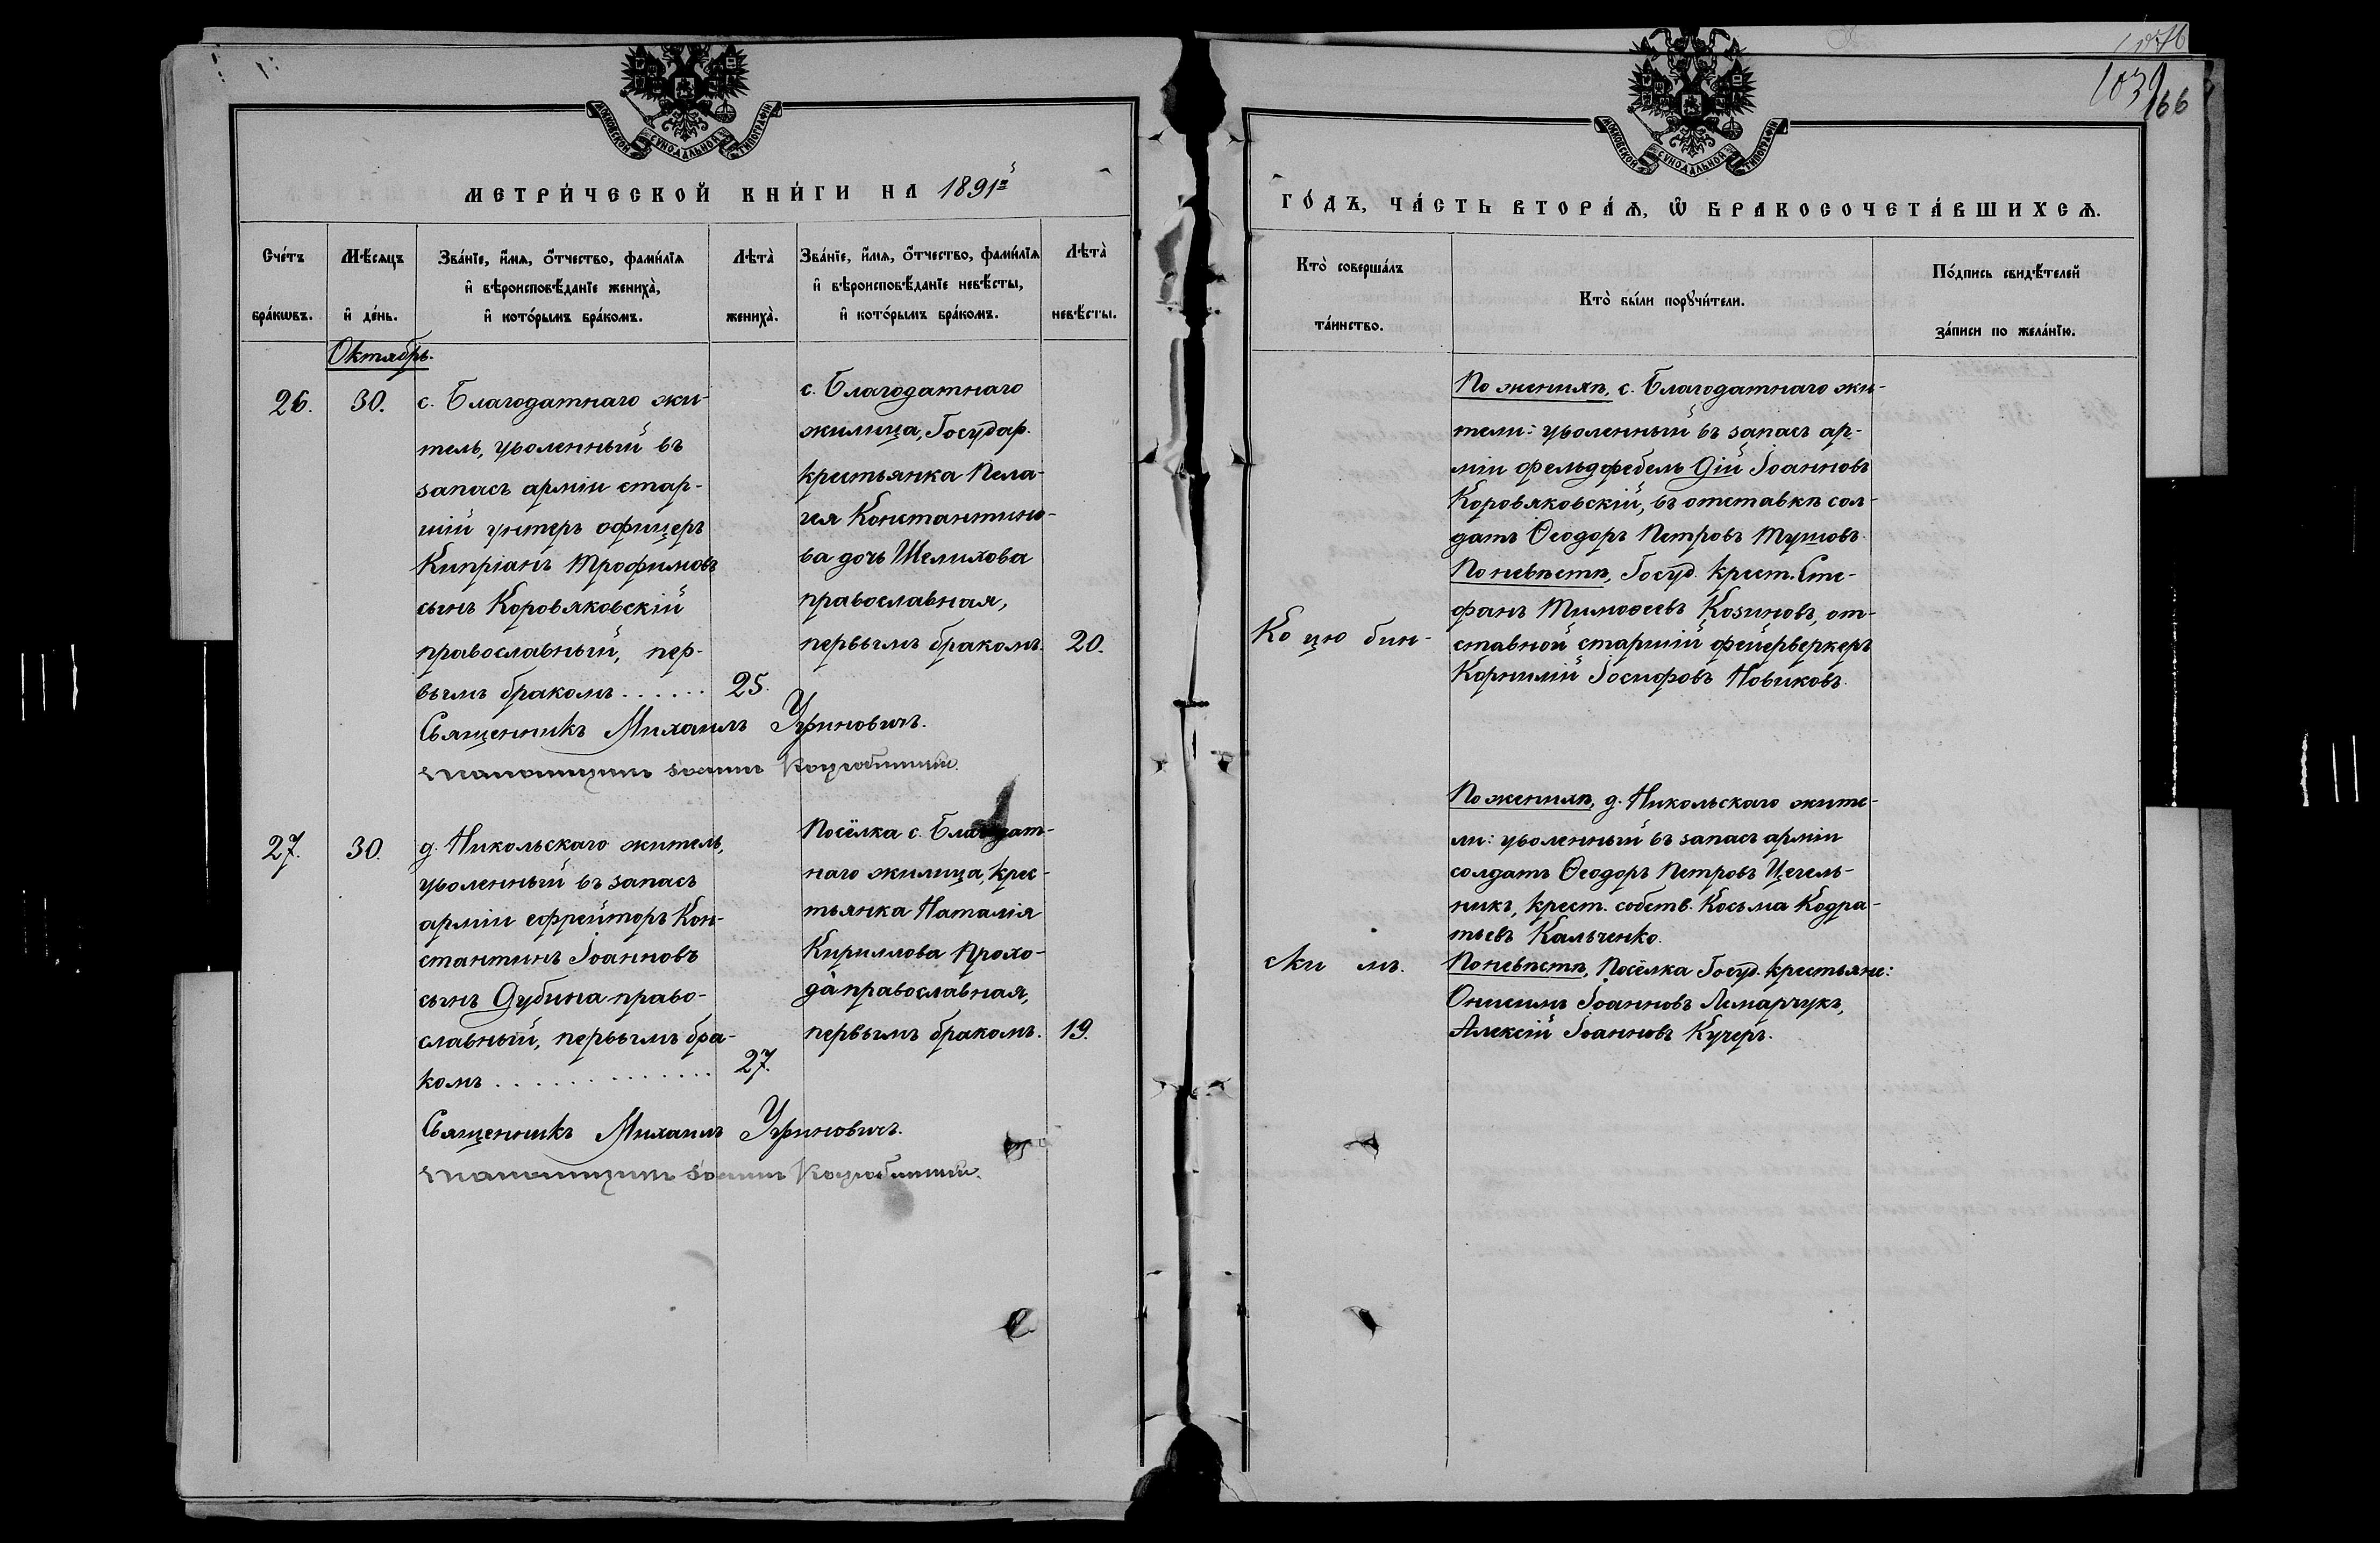 МОСКОВСКОЙ СѴНОДАЛЬНОЙ ТИПОГРАФІИ
МЕТРИ́ЧЕСКОЙ КНИ́ГИ НА 1891й
Сче́тъ бра́кωвъ.
Мѣ́сяцъ и҆ де́нь.
Зва́нїе, и҆́мѧ, ѻ҆́тчество, фами́лїѧ
и҆ вѣроисповѣ́данїе жениха̀,
и҆ кото́рымъ бра́комъ.
Лѣта̀ жениха̀.
Зва́нїе, и҆́мѧ, ѻ҆́тчество, фами́лїѧ
и҆ вѣроисповѣ́данїе невѣ́сты,
и҆ кото́рымъ бра́комъ.
Лѣта̀ невѣ́сты.
Октябрь.
26.
30.
с. Благодатнаго жи-
тель, уволенный въ
запасъ арміи стар-
шій унтеръ офицеръ
Кипріанъ Трофимовъ
сынъ Коровяковскій
православный, пер-
вымъ бракомъ......
25.
с. Благодатнаго
жилица, Государ.
крестьянка Пела-
гея Константино-
ва дочь Шелихова
православная,
первымъ бракомъ.
20.
Священникъ Михаилъ Угриновичъ.
Псаломщикъ Іоаннъ Коцюбинскій.
27.
30.
д. Никольскаго житель,
уволенный въ запасъ
арміи ефрейторъ Кон-
стантинъ Іоанновъ
сынъ Дубина право-
славный, первымъ бра-
комъ..............
27.
Посёлка с. Благодат-
наго жилица, крес-
тьянка Наталія
Кириллова Прохо-
да православная,
первымъ бракомъ.
19.
Священникъ Михаилъ Угриновичъ.
Псаломщикъ Іоаннъ Коцюбинскій.
1039
166
МОСКОВСКОЙ СѴНОДАЛЬНОЙ ТИПОГРАФІИ
ГО́ДЪ, ЧА́СТЬ ВТОРА́Ѧ, Ѽ БРАКОСОЧЕТА́ВШИХСѦ.
Кто̀ соверша́лъ
та́инство.
Кто̀ бы́ли порꙋчи́тели.
По́дпись свидѣ́телей
за́писи по жела́нїю.
По женихѣ, с. Благодатнаго жи-
тели: уволенный въ запасъ ар-
міи фельдфебель Дій Іоанновъ
Коровяковскій, въ отставкѣ сол-
датъ Ѳеодоръ Петровъ Тушовъ.
По невѣстѣ, Госуд. крест. Сте-
фанъ Тимоѳеевъ Козиновъ, от-
ставной старшій фейерверкеръ
Корнилій Іосифовъ Новиковъ.
Коцюбин-
По женихѣ, д. Никольскаго жите-
ли: уволенный въ запасъ арміи
солдатъ Ѳеодоръ Петровъ Цегель-
никъ, крест. собств. Косьма Кодра-
тьевъ Кальченко.
По невѣстѣ, Посёлка Госуд. крестьяне:
Онисимъ Іоанновъ Лимарчукъ,
Алексій Іоанновъ Кучеръ.
скимъ.